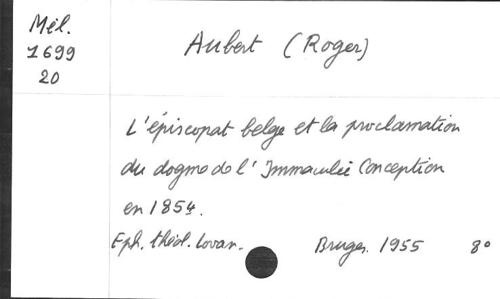 Mél.
1699
20
Aubert (Roger)
L'épiscopat belge et la proclamation
du dogme de l'Immaculée Conception
en 1854.
Eph. théol. Lovan. Bruges. 1955 8°